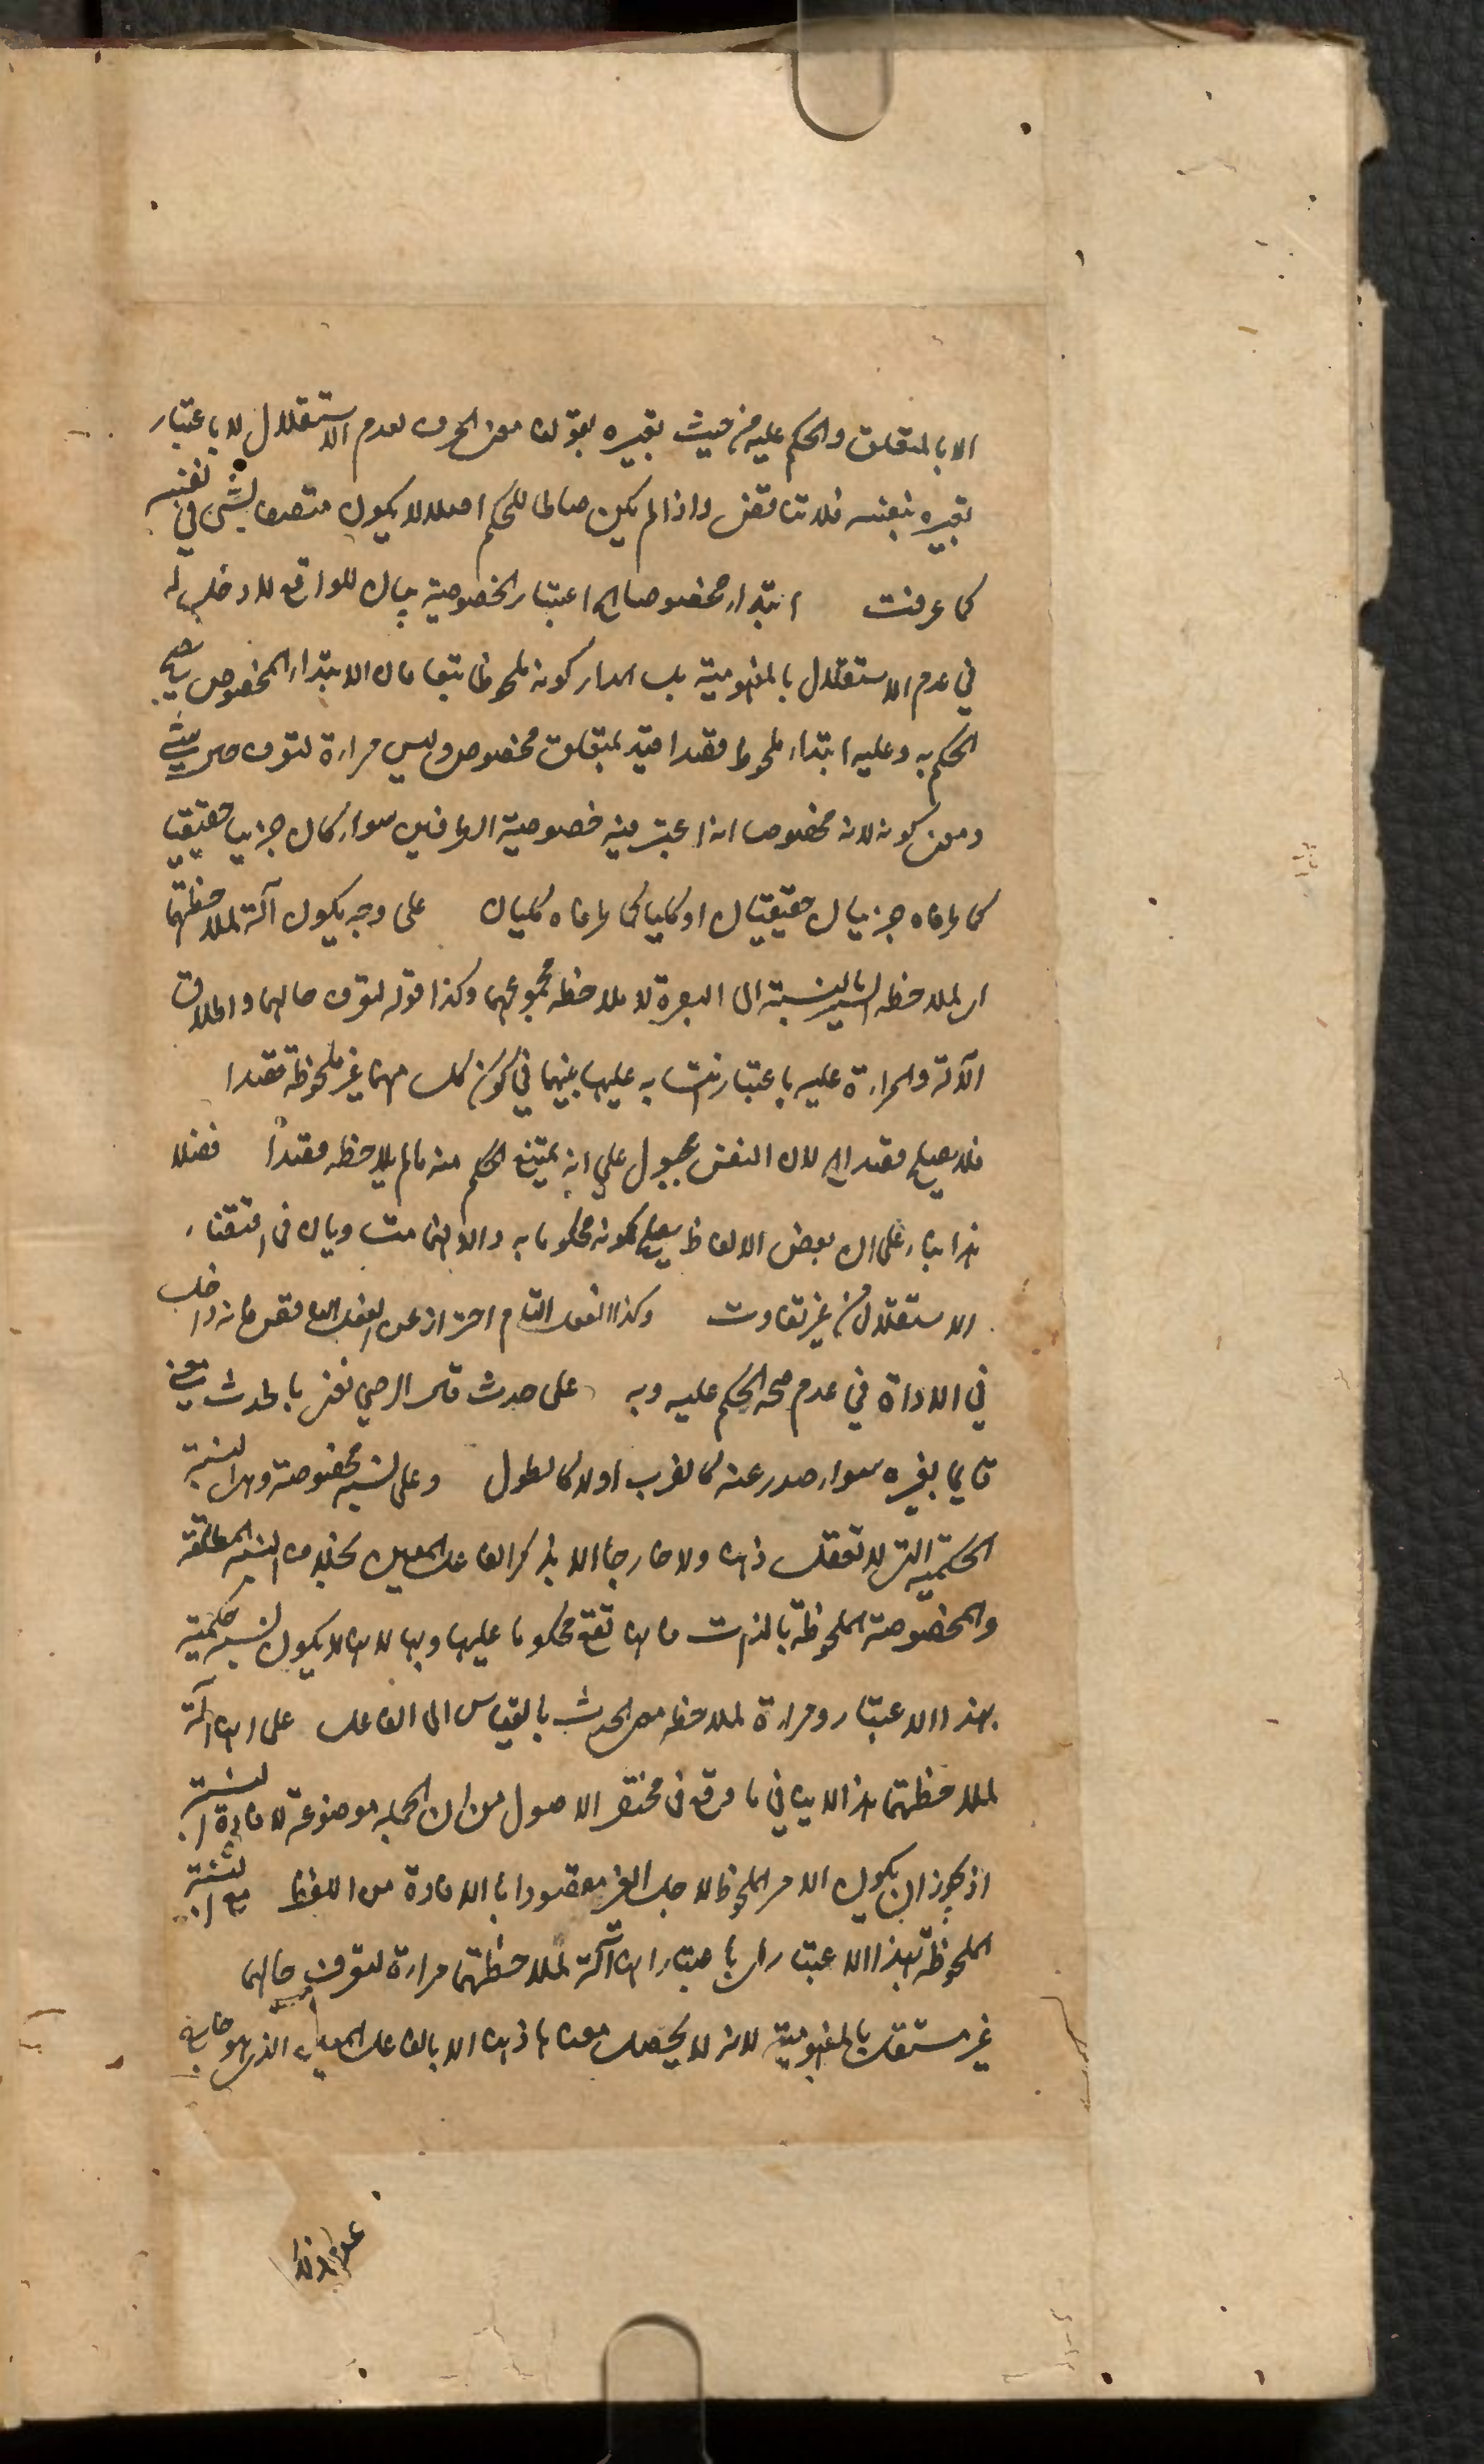 الا بالمتعلق والحكم عليه من حيث تعبيره بقولنا معنى الحرف لعدم الاستقلال لا باعتبار
تعبيره بنفسه فلا تناقض واذا لم يكن صالحا للحكم اصلا لا يكون متصفا بشئ في نفسه
كما عرفت ابتداء مخصوصا اه اعتبار الخصوصية بيان للواقع لا دخل له
في عدم الاستقلال بالمفهومية بل المدار كونه ملحوظا تبعا فان الابتداء المخصوص يصح
الحكم به وعليه ابتداء ملحوظ قصدا قيد بمتعلق مخصوص وليس مراة لتعرف حال شئ
ومعنى كونه مخصوصا انه اعتبر فيه خصوصية الطرفين سواء كان جزئيا حقيقيا
كما طرفاه جزئيان حقيقيان او كليا كما طرفاه كليان على وجه يكون آلة لملاحظتهما
اى لملاحظة السير بالنسبة الى البصرة لا ملاحظة مجموعهما وكذا قوله لتعرف حالهما واطلاق
الآلة والمراة عليه باعتبار التشابه عليها بينهما في كون كل منهما غير ملحوظة قصدا
فلا يصلح قصدا اه لان النفس مجبول على انه يمتنع الحكم منه ما لم يلاحظه قصدًا فضلا
هذا بناء على ان بعض الالفاظ يصلح لكونه محكوما به والا فهما متساويان في اقتضاء
الاستقلال من غير تفاوت وكذا الفعل التام احتراز عن الفعل الناقص فانه داخل
في الاداة في عدم صحة الحكم عليه وبه على حدث قال الرضي نعني بالحدث معنى
قائما بغيره سواء صدر عنه كالضرب او لا كالطول وعلى نسبة مخصوصة وهى النسبة
الحكمية التى لا تعقل ذهنا ولا خارجا الا بذكر الفاعل المعين بخلاف النسبة المطلقة
والمخصوصة الملحوظة بالذات فانها تقع محكوما عليها وبها لانها لا يكون نسبة حكمية
بهذا الاعتبار ومراة لملاحظة معنى الحدث بالقياس الى الفاعل على انها آلة
لملاحظتهما هذا لا ينافي ما وقع في مختصر الاصول من ان الجملة موضوعة لافادة النسبة
اذ يجوز ان يكون الامر الملحوظ لاجل الغير مقصودا بالافادة من اللفظ مع النسبة
الملحوظة بهذا الاعتبار اى باعتبار انها آلة لملاحظتهما مراة لتعرف حالهما
غير مستقل بالمفهومية لانه لا يحصل معناها ذهنا الا بالفاعل المعين الذي هو خارج